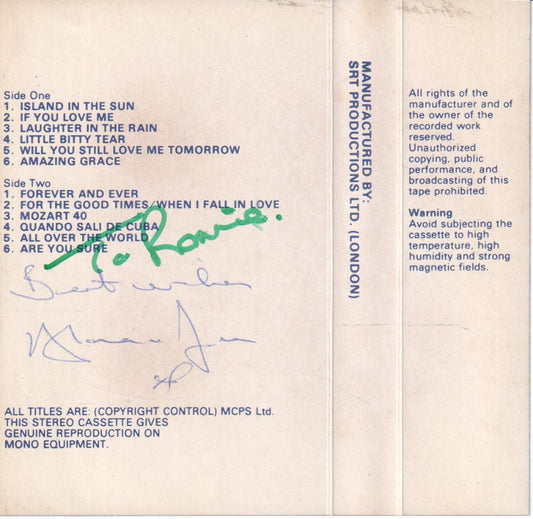 Side One
1. ISLAND IN THE SUN
2. IF YOU LOVE ME
3. LAUGHTER IN THE RAIN
4. LITTLE BITTY TEAR
5. WILL YOU STILL LOVE ME TOMORROW
6. AMAZING GRACE
Side Two
1. FOREVER AND EVER
2. FOR THE GOOD TIMES/WHEN I FALL IN LOVE
3. MOZART 40
4. QUANDO SALI DE CUBA
5. ALL OVER THE WORLD
6. ARE YOU SURE
To Ronnie.
Best wishes
x
ALL TITLES ARE: (COPYRIGHT CONTROL) MCPS Ltd.
THIS STEREO CASSETTE GIVES
GENUINE REPRODUCTION ON
MONO EQUIPMENT.
MANUFACTURED BY:
SRT PRODUCTIONS LTD. (LONDON)
All rights of the
manufacturer and of
the owner of the
recorded work
reserved.
Unauthorized
copying, public
performance, and
broadcasting of this
tape prohibited.
Warning
Avoid subjecting the
cassette to high
temperature, high
humidity and strong
magnetic fields.